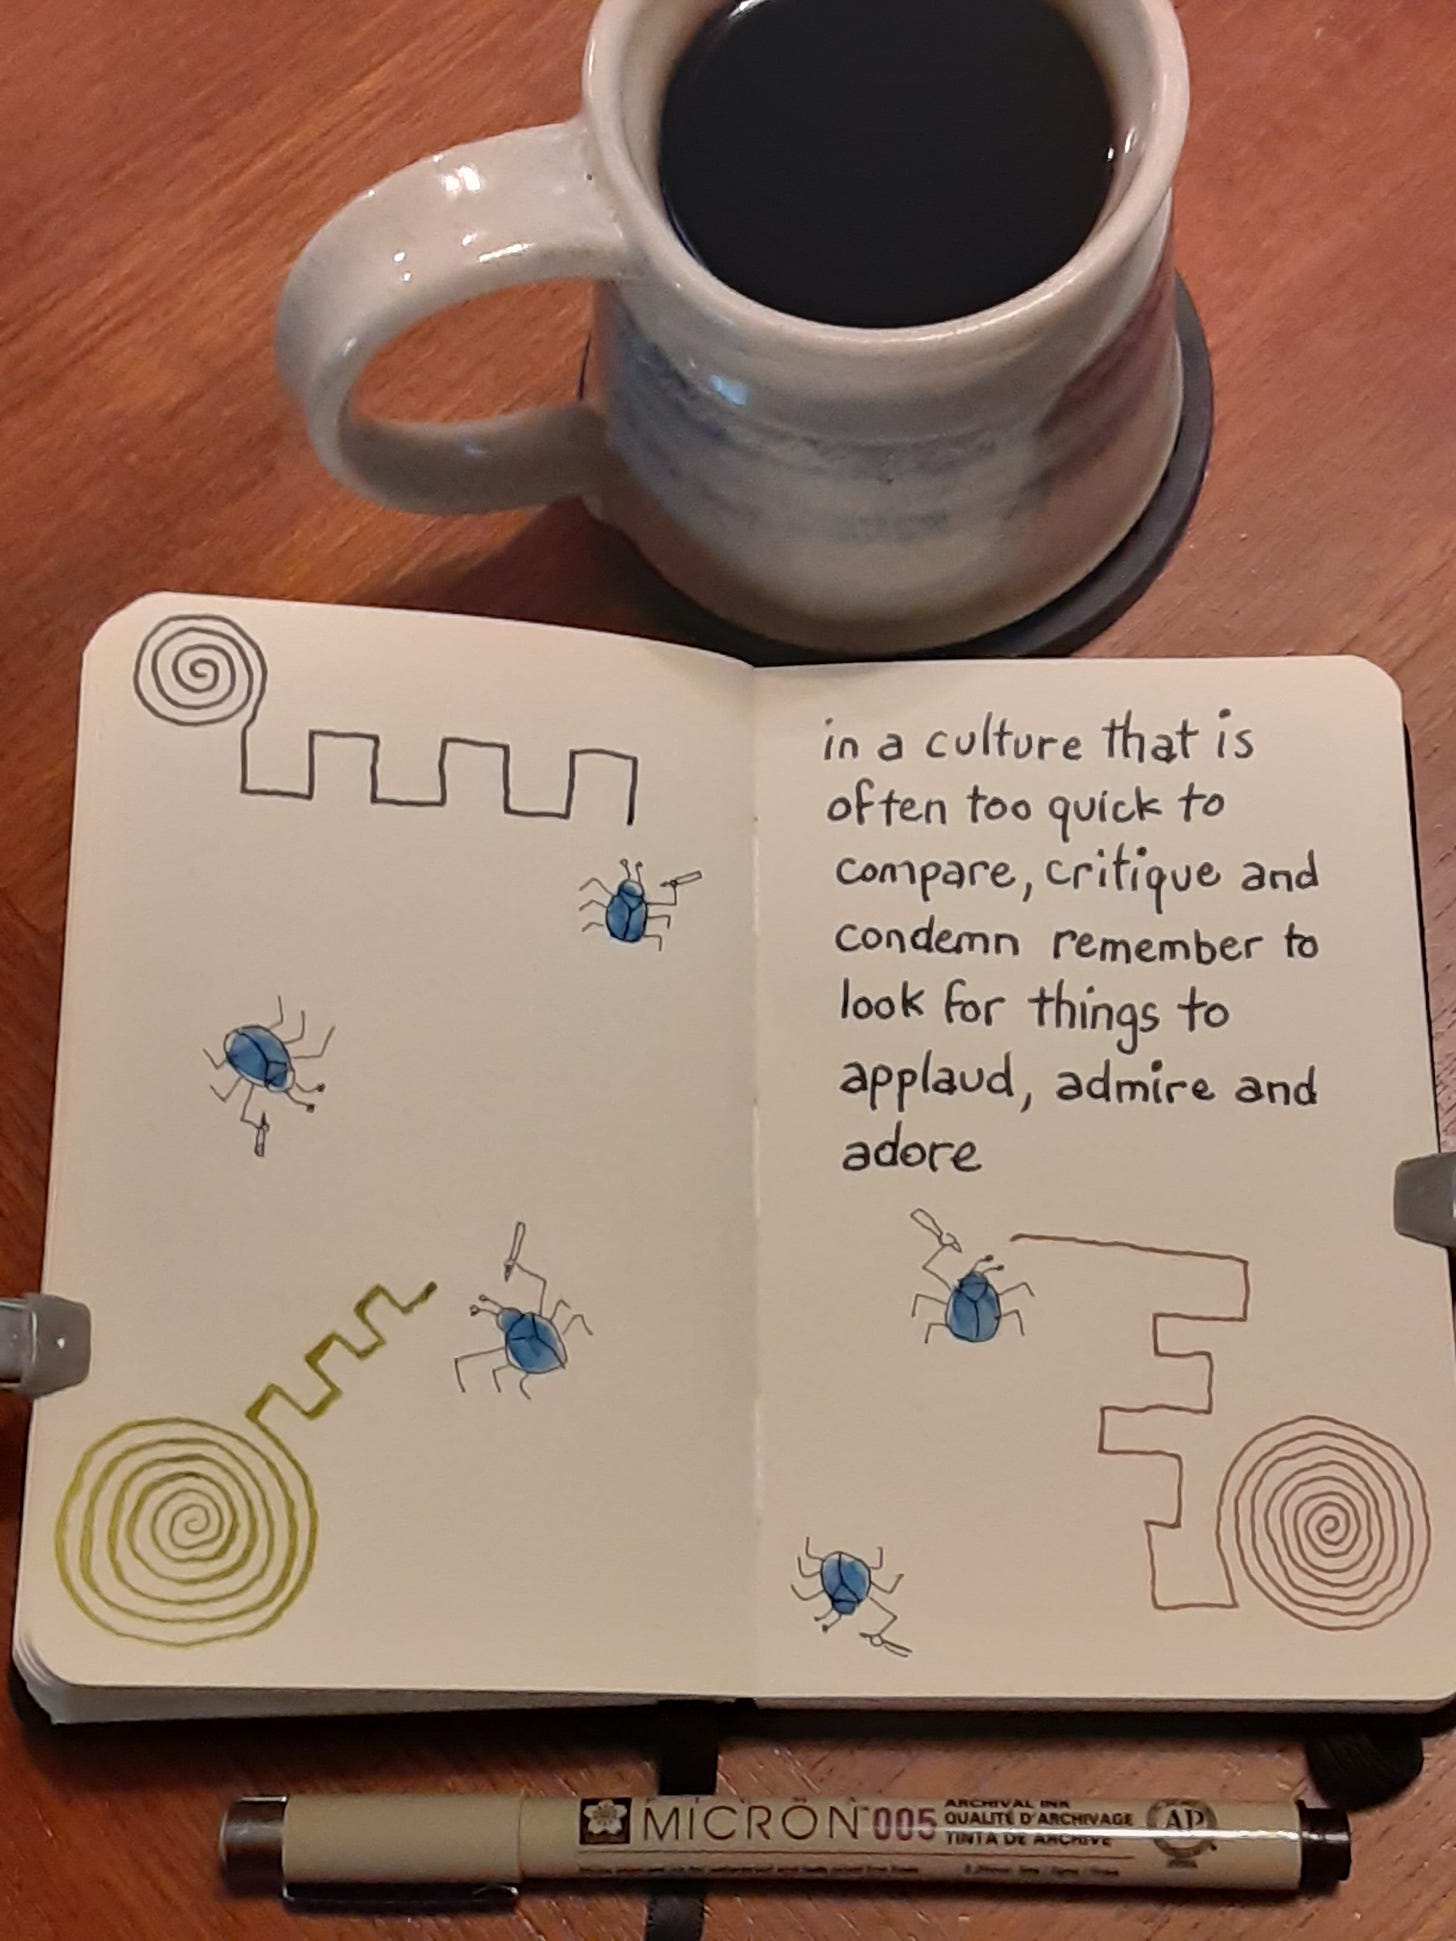 in a culture that is
often too quick to
compare, critique and
condemn remember to
look for things to
applaud, admire and
adore
MICRON 005
ARCHIVAL INK
QUALITÉ D'ARCHIVAGE
TINTA DE ARCHIVE
AP